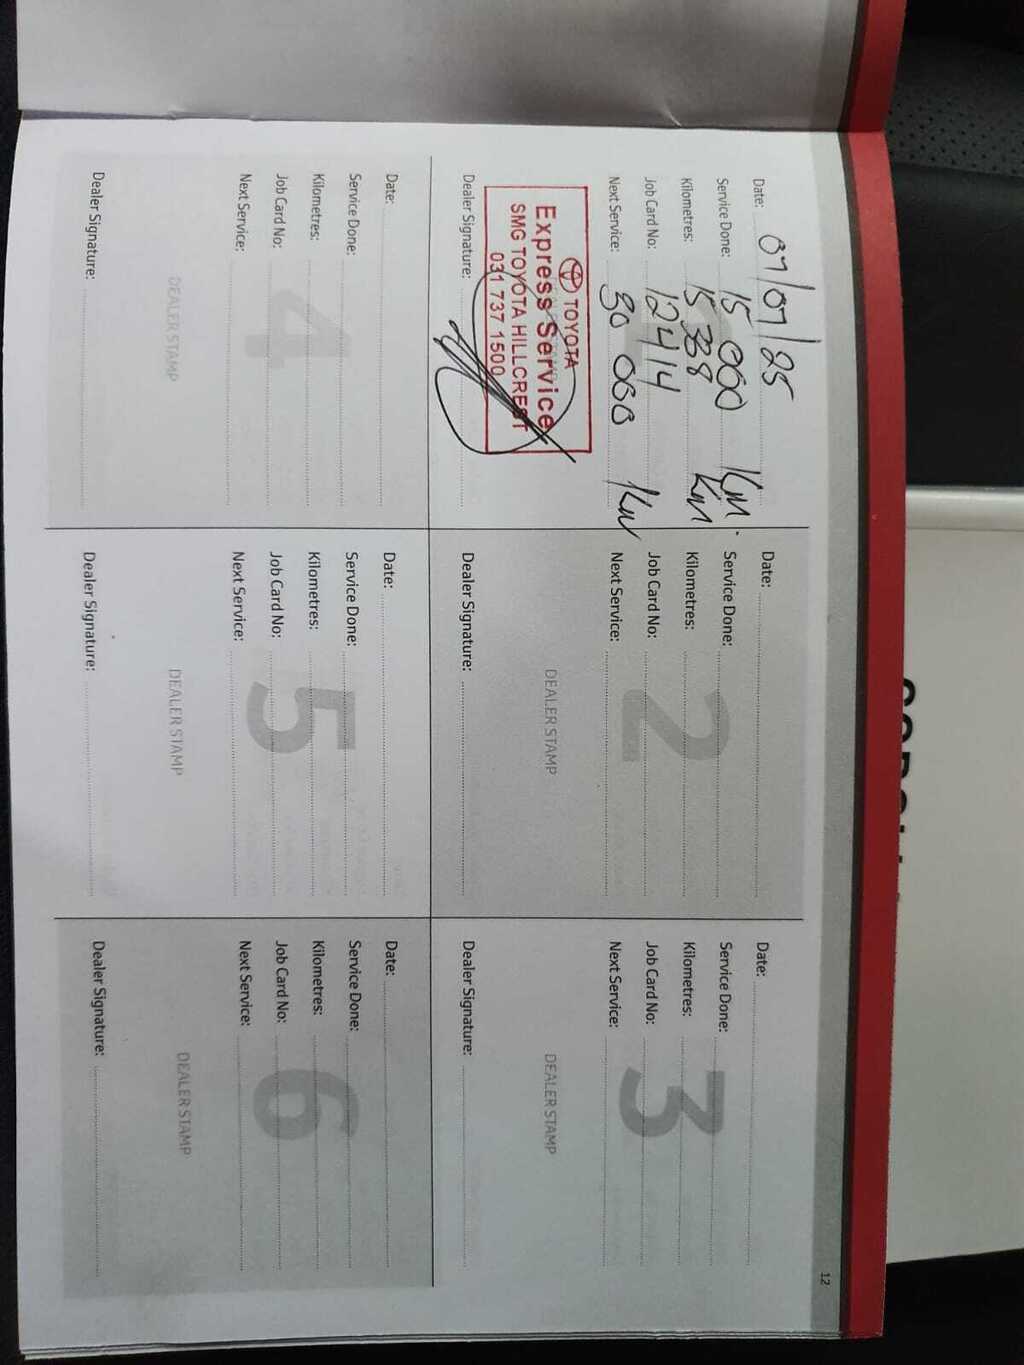 Date: 07/07/25
Service Done: 15 000 Km.
Kilometres: 15 388 Km
Job Card No: 12414
Next Service: 30 000 Km
TOYOTA
Express Service
SMG TOYOTA HILLCREST
031 737 1500
Dealer Signature:
Date:
Service Done:
Kilometres:
Job Card No:
Next Service:
2
DEALER STAMP
Dealer Signature:
Date:
Service Done:
Kilometres:
Job Card No:
Next Service:
3
DEALER STAMP
Dealer Signature:
Date:
Service Done:
Kilometres:
Job Card No:
Next Service:
4
DEALER STAMP
Dealer Signature:
Date:
Service Done:
Kilometres:
Job Card No:
Next Service:
5
DEALER STAMP
Dealer Signature:
Date:
Service Done:
Kilometres:
Job Card No:
Next Service:
6
DEALER STAMP
Dealer Signature:
12